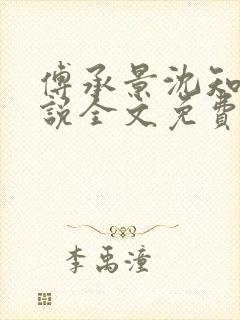 傅承景沈知
說全文免費
李禹潼